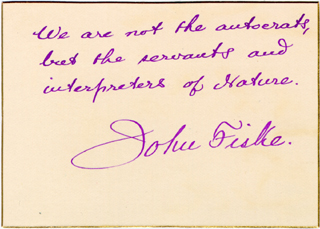 We are not the autocrats,
but the servants and
interpreters of Nature.
John Fiske.